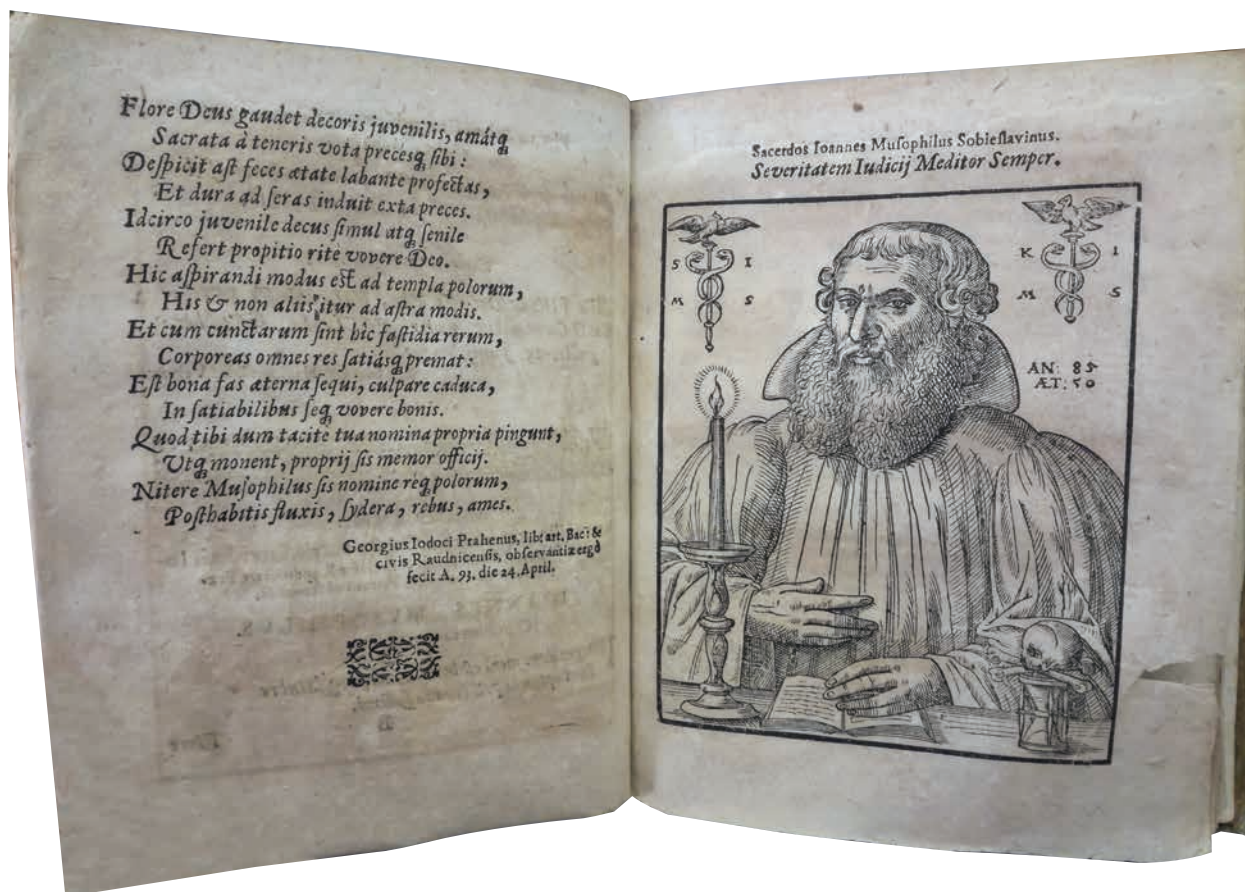 Flore Deus gaudet decoris juvenilis, amátq́
Sacrata à teneris vota precesq́ sibi:
Despicit ast feces ætate labante profectas,
Et dura ad seras induit exta preces.
Idcirco juvenile decus simul atq́ senile
Refert propitio ritè vovere Deo.
Hic aspirandi modus est ad templa polorum,
His & non aliis itur ad astra modis.
Et cum cunctarum sint hic fastidia rerum,
Corporeas omnes res satiásq́ premat:
Est bona fas æterna sequi, culpare caduca,
In satiabilibus seq́ vovere bonis.
Quod tibi dum tacite tua nomina propria pingunt,
Vtq́ monent, proprij sis memor officij.
Nitere Musophilus sis nomine req́ polorum,
Posthabitis fluxis, sydera, rebus, ames.
Georgius Iodoci Prahenus, lib: art. Bac: &
civis Raudnicensis, observantiæ ergò
fecit A. 93. die 24. April.
Sacerdos Ioannes Musophilus Sobieslavinus.
Severitatem Iudicij Meditor Semper.
S I
M S
K I
M S
AN: 85
ÆT: 50